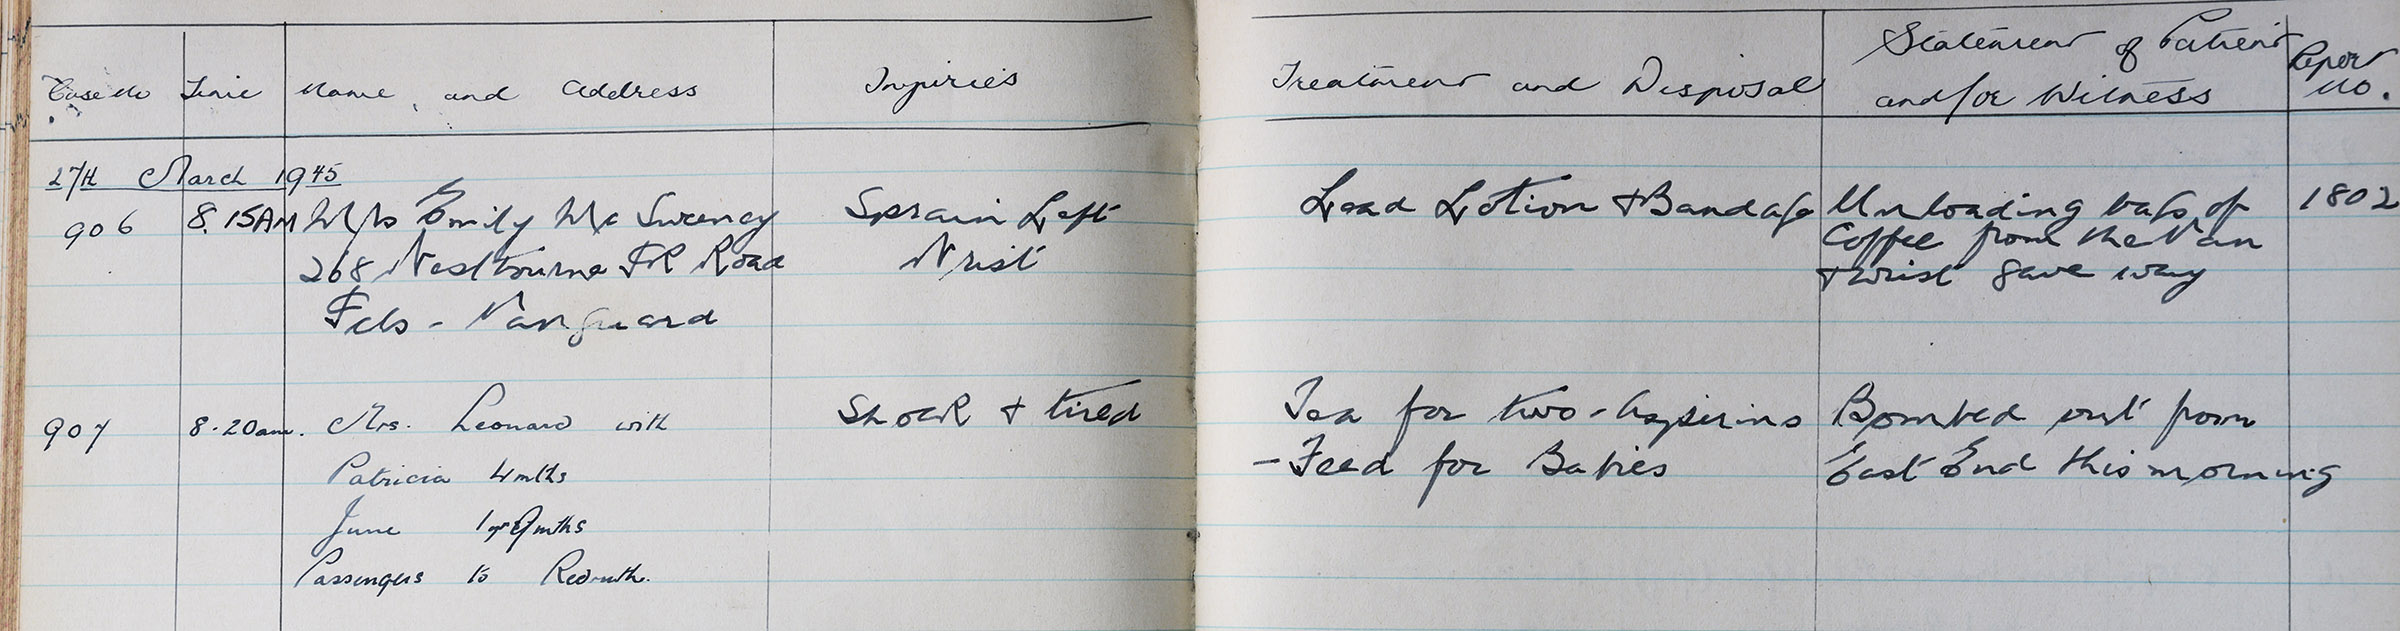 Case No Time Name and Address Injuries Treatment and Disposal Statement of Patient and/or Witness Report No.
27th March 1945
906 8.15AM M/s Emily Mc Sweeney Sprain Left Lead Lotion & Bandage Unloading bags of 1802
268 Westbourne Road Wrist Coffee from the Van
& wrist gave way
- Vanguard
907 8.20am. Mrs. Leonard with Shock & tired Tea for two - Aspirins Bombed out from
Patricia 4mths - Feed for Babies East End this morning
June 1yr mths
Passengers to Redruth.